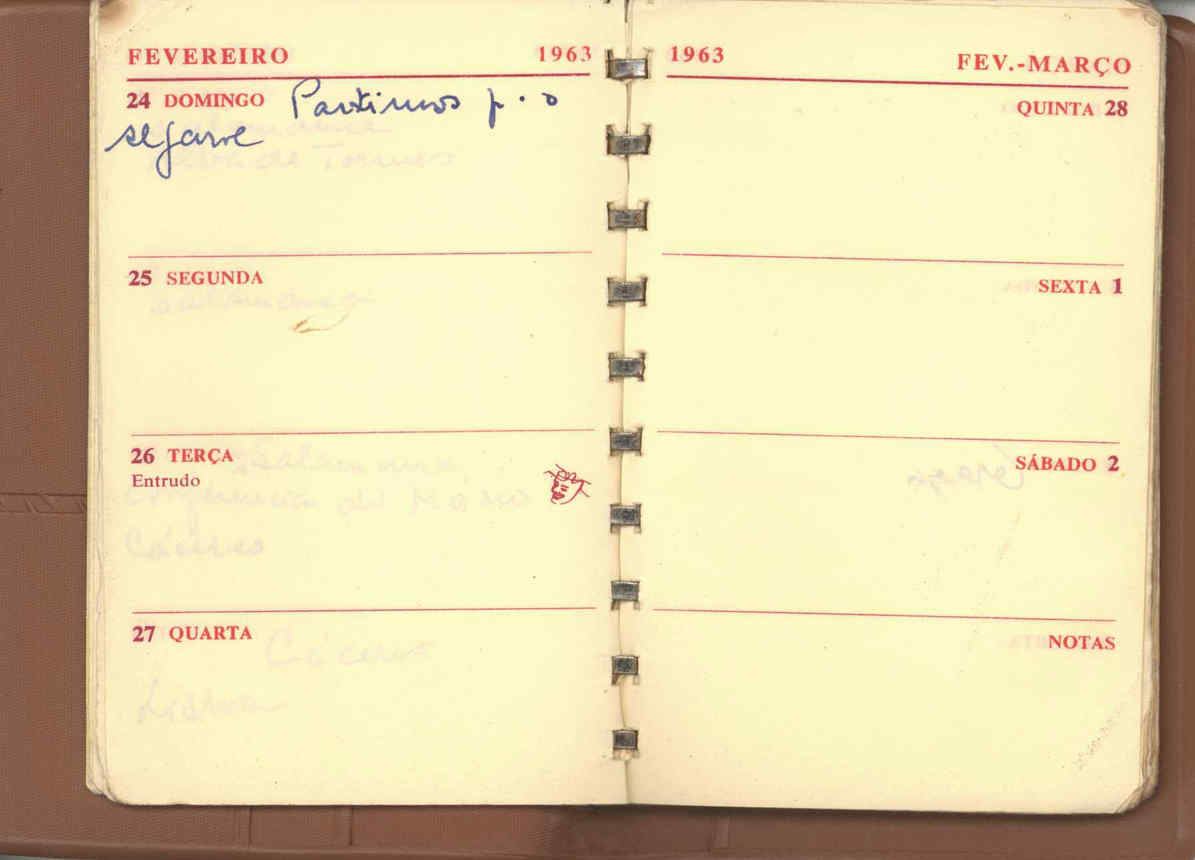 FEVEREIRO 1963
24 DOMINGO Partimos p. o
algarve
25 SEGUNDA
26 TERÇA
Entrudo
27 QUARTA
1963 FEV.-MARÇO
QUINTA 28
SEXTA 1
SÁBADO 2
NOTAS